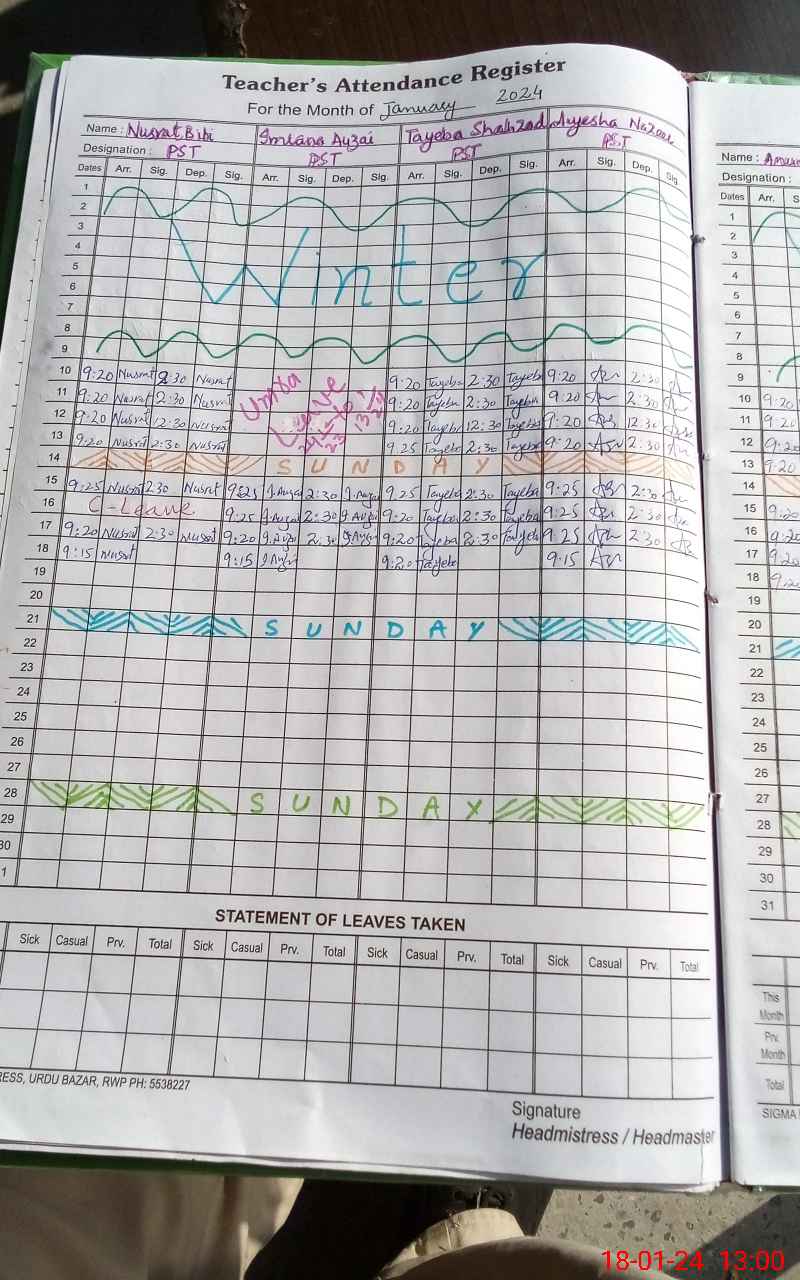 Teacher's Attendance Register
For the Month of January 2024
Name : Nusrat Bibi Imrana Auzai Tayeba Shahzad Ayesha Nazeer
Designation : PST PST PST PST
Dates Arr. Sig. Dep. Sig. Arr. Sig. Dep. Sig. Arr. Sig. Dep. Sig. Arr. Sig. Dep. Sig.
1
2
3
4
Winter
5
6
7
8
9
10 9:20 Nusrat 2:30 Nusrat 9:20 Tayeba 2:30 Tayeba 9:20 2:30
11 9:20 Nusrat 2:30 Nusrat Umra Leave 9:20 Tayeba 2:30 Tayeba 9:20 2:30
12 9:20 Nusrat 12:30 Nusrat 9:20 Tayeba 12:30 Tayeba 9:20 12:30
13 9:20 Nusrat 2:30 Nusrat 9.25 Tayeba 2:30 Tayeba 9:20 2:30
14 SUNDAY
15 9:25 Nusrat 2:30 Nusrat 9:25 I.Auzai 2:30 I.Auzai 9.25 Tayeba 2:30 Tayeba 9:25 2:30
16 C-Leave 9:25 I.Auzai 2:30 I.Auzai 9:20 Tayeba 2:30 Tayeba 9:25 2:30
17 9:20 Nusrat 2:30 Nusrat 9:20 I.Auzai 2:30 I.Auzai 9:20 Tayeba 2:30 Tayeba 9:25 2:30
18 9:15 Nusrat 9:15 I.Auzai 9:20 Tayeba 9:15
19
20
21 SUNDAY
22
23
24
25
26
27
28 SUNDAY
29
30
1
STATEMENT OF LEAVES TAKEN
Sick Casual Prv. Total Sick Casual Prv. Total Sick Casual Prv. Total Sick Casual Prv. Total
RESS, URDU BAZAR, RWP PH: 5538227
Signature
Headmistress / Headmaster
Name :
Designation :
Dates Arr. S
1
2
3
4
5
6
7
8
9
10 9:20
11 9:20
12 9:20
13 9:20
14
15 9:20
16 9:20
17 9:20
18 9:20
19
20
21
22
23
24
25
26
27
28
29
30
31
This Month
Prv. Month
Total
SIGMA
18-01-24 13:00